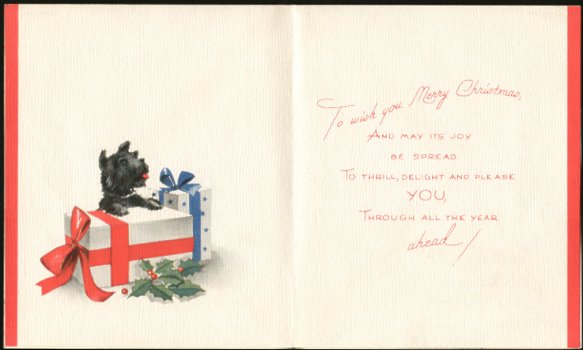 To wish you Merry Christmas,
AND MAY ITS JOY
BE SPREAD
TO THRILL, DELIGHT AND PLEASE
YOU,
THROUGH ALL THE YEAR
ahead!